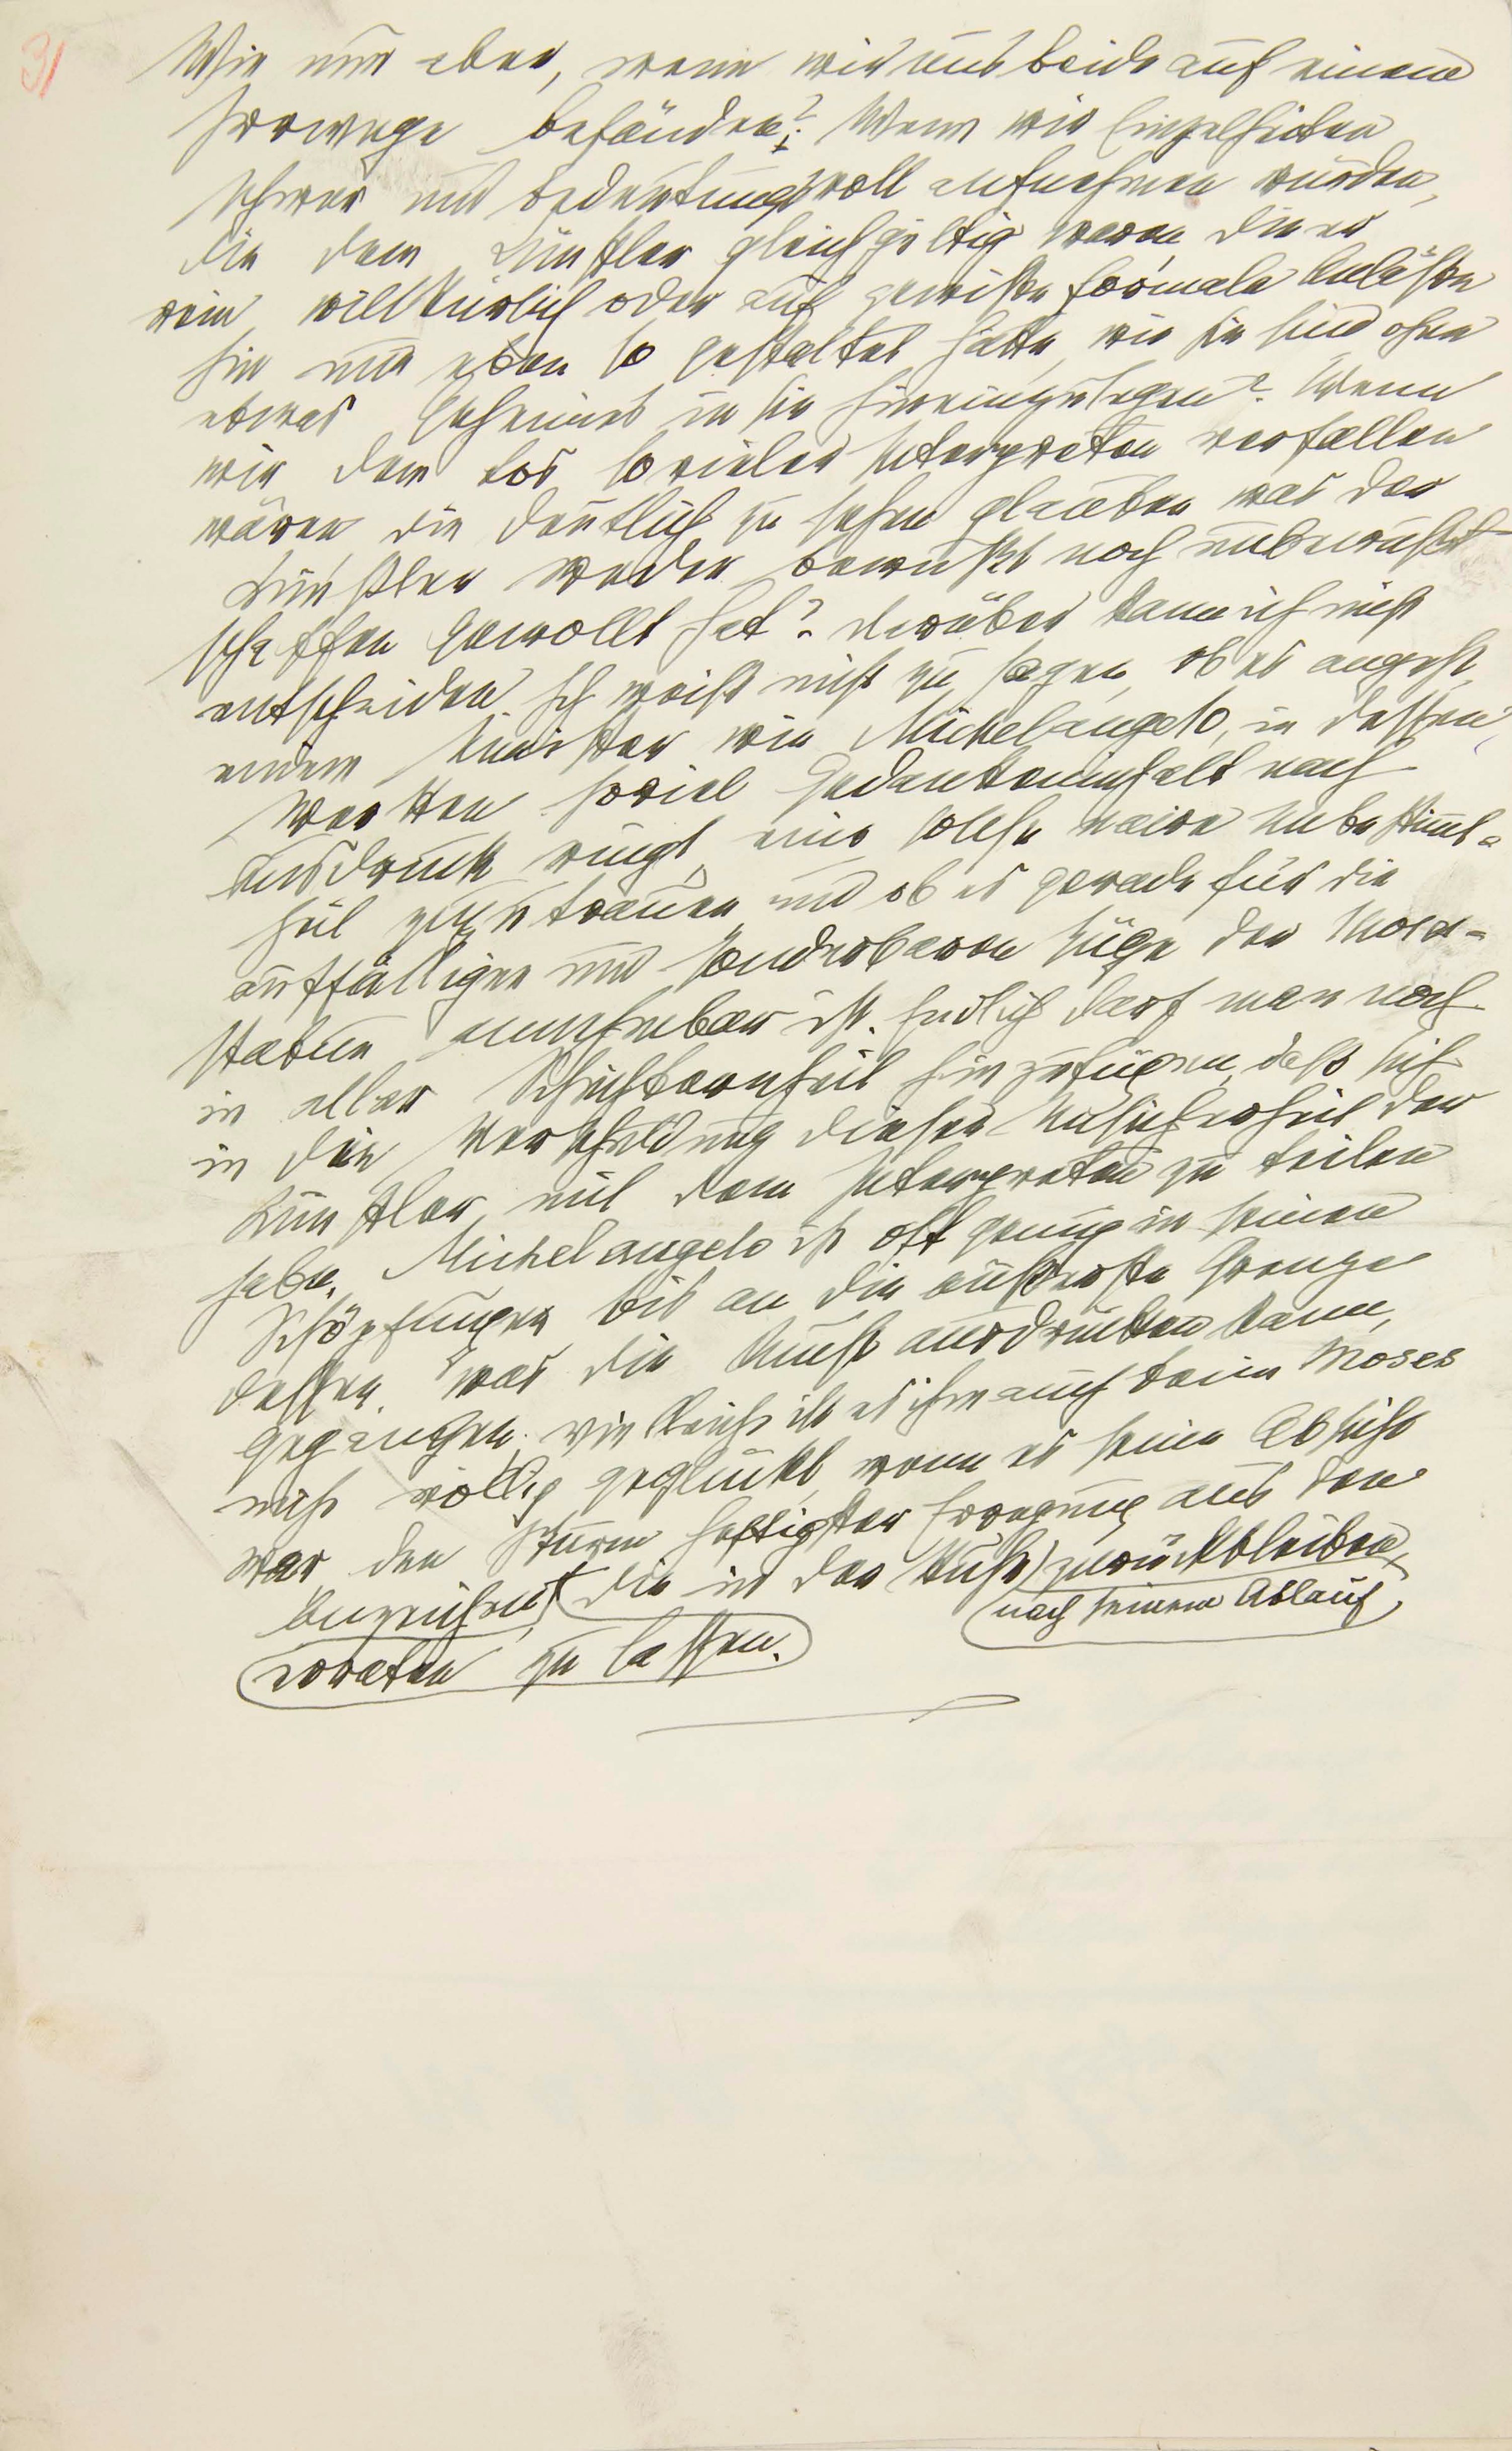 31
Wie nun aber, wenn wir uns beide auf einem
Irrwege befänden? Wenn wir Einzelheiten
schwer und bedeutungsvoll aufnehmen würden,
die dem Künstler gleichgiltig waren, die er
rein willkürlich oder auf gewisse formale Anlässe
hin nur eben so gestaltet hätte, wie sie sind ohne
etwas Geheimes in sie hineinzulegen? Wenn
wir dem Los so vieler Interpreten verfallen
wären die deutlich zu sehen glauben was der
Künstler weder bewußt noch unbewußt
schaffen gewollt hat? Darüber kann ich nicht
entscheiden. Ich weiß nicht zu sagen, ob es angeht,
einem Künstler wie Michelangelo, in dessen
Werken soviel Gedankeninhalt nach
Ausdruck ringt, eine solche naive Unbestimmt-
heit zuzutrauen und ob es gerade für die
auffälligen und sonderbaren Züge der Moses-
statue annehmbar ist. Endlich darf man noch
in aller Schüchternheit hinzufügen, daß sich
in die Verschuldung dieser Unsicherheit der
Künstler mit dem Interpreten zu teilen
habe. Michelangelo ist oft genug in seinen
Schöpfungen bis an die äußerste Grenze
dessen, was die Kunst ausdrücken kann,
gegangen; vielleicht ist es ihm auch beim Moses
nicht völlig geglückt, wenn es seine Absicht
war den Sturm heftigster Erregung aus den
Anzeichen, die in der Ruhe zurückbleiben,
nach seinem Ablauf
erraten zu lassen.